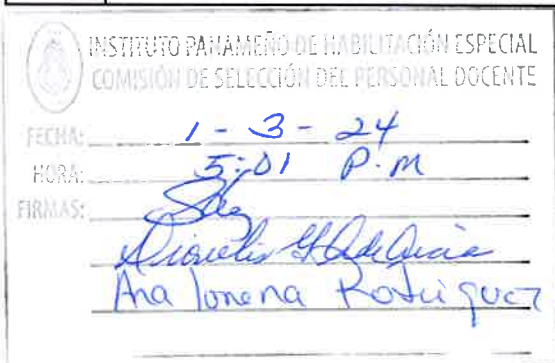 INSTITUTO PANAMEÑO DE HABILITACIÓN ESPECIAL
COMISIÓN DE SELECCIÓN DEL PERSONAL DOCENTE
FECHA: 1 - 3 - 24
HORA: 5:01 P.M
FIRMAS:
Ana Lorena Rodriguez